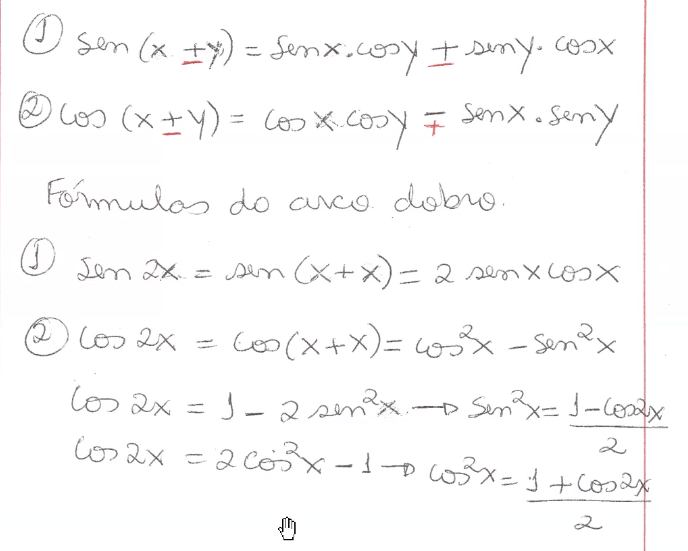 ① sen (x ± y) = senx.cosy ± seny. cosx
② cos (x ± y) = cosx.cosy ∓ senx.seny
Fórmulas do arco dobro.
① sen 2x = sen (x+x) = 2 senxcosx
② cos 2x = cos(x+x) = cos²x - sen²x
cos 2x = 1 - 2 sen²x → sen²x = (1-cos2x)/2
cos 2x = 2cos²x - 1 → cos²x = (1 + cos2x)/2